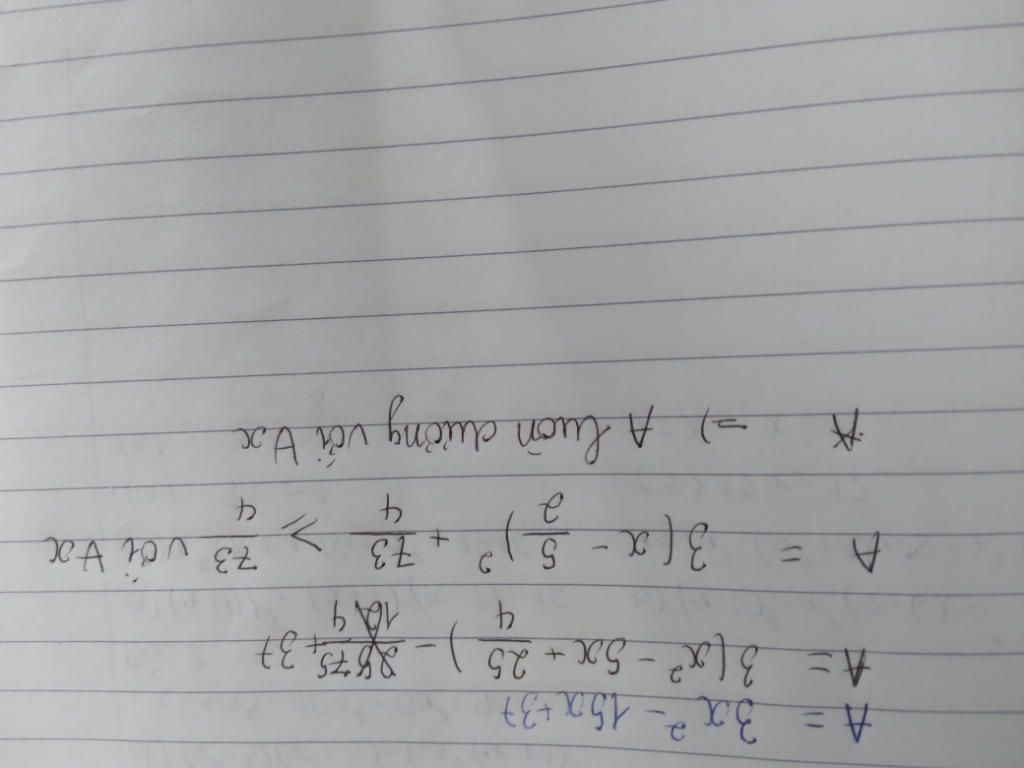 A = 3x² - 15x + 37
A = 3(x² - 5x + 25/4) - 75/4 + 37
A = 3(x - 5/2)² + 73/4 ≥ 73/4 với ∀x
A => A luôn dương với ∀x